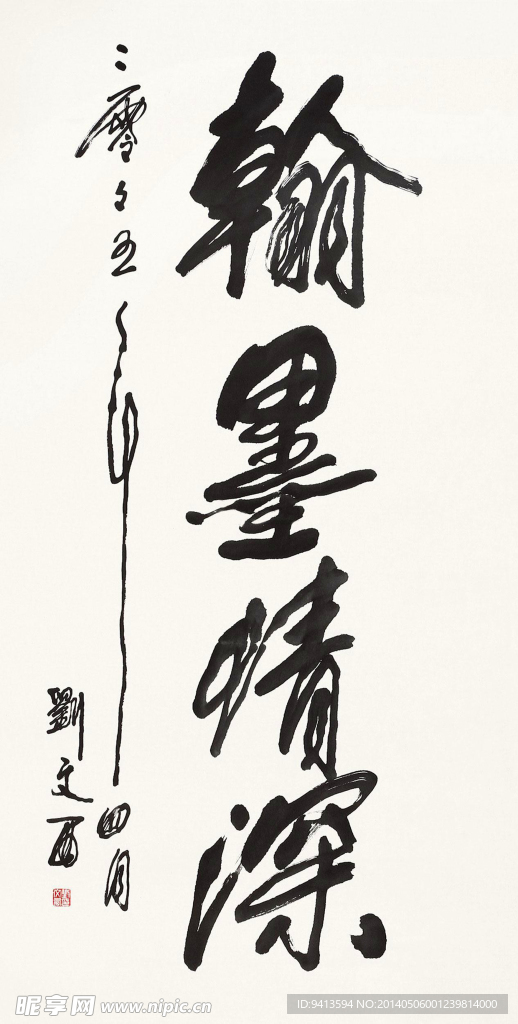 翰墨情深
二零零五年四月
劉文西
昵享网 www.nipic.cn
ID:9413594 NO:20140506001239814000